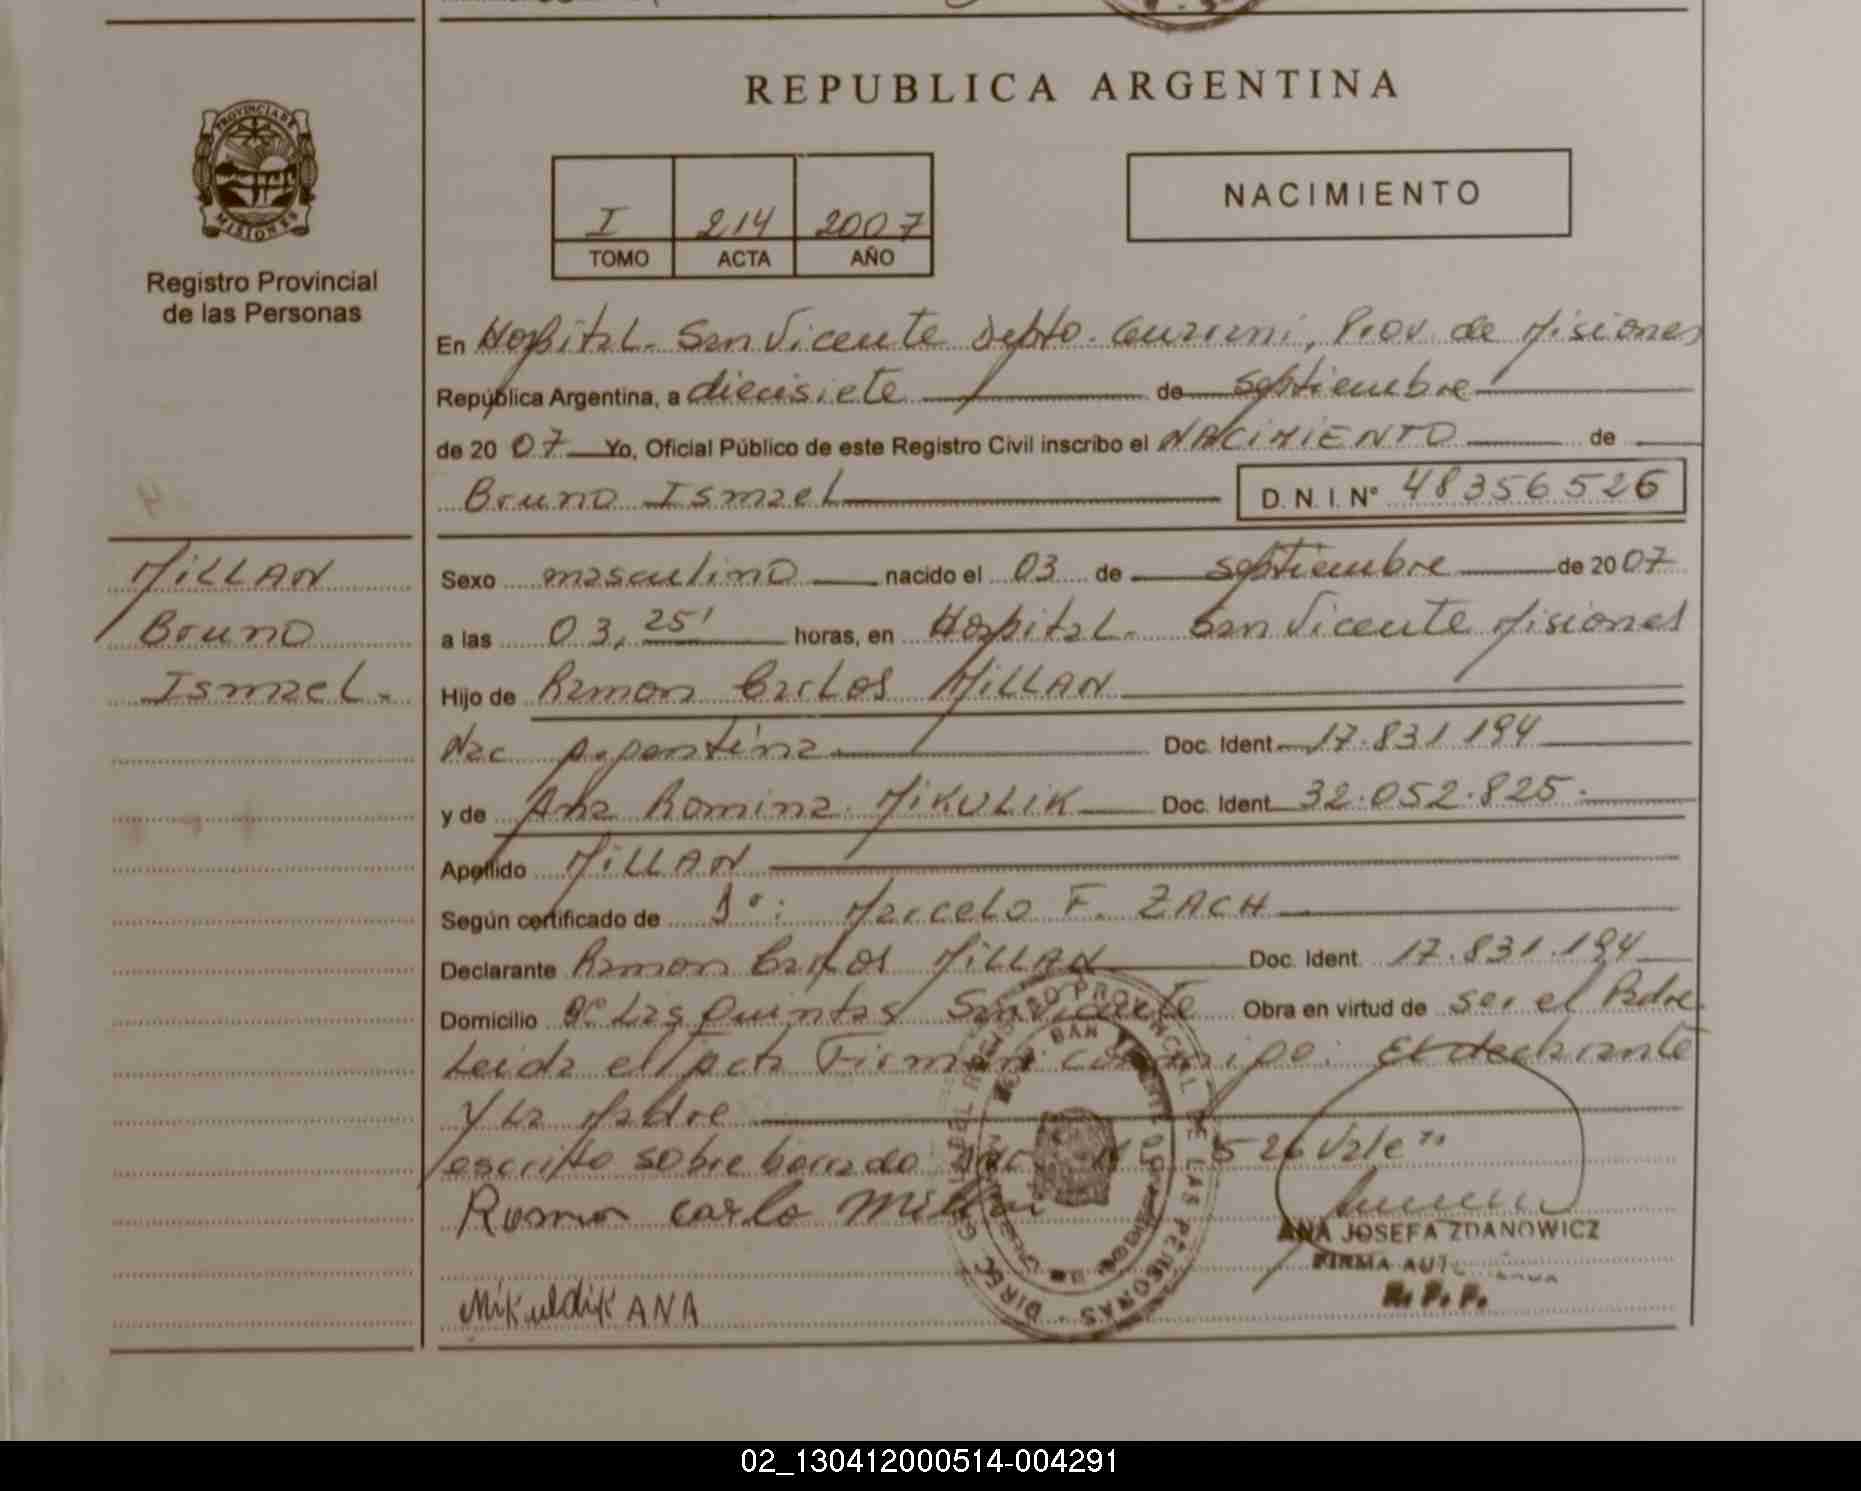 REPUBLICA ARGENTINA
PROVINCIA DE
MISIONES
Registro Provincial
de las Personas
I 214 2007
TOMO ACTA AÑO
NACIMIENTO
En Hospital - San Vicente Depto. Guarani, Prov. de Misiones
República Argentina, a diecisiete de septiembre
de 2007 Yo, Oficial Público de este Registro Civil inscribo el NACIMIENTO de
Bruno Ismael D. N. I. N° 48356526
MILLAN
Bruno
Ismael.
Sexo masculino nacido el 03 de septiembre de 2007
a las 03, 25' horas, en Hospital - San Vicente Misiones
Hijo de Ramon Carlos MILLAN
Nac Argentina Doc. Ident. 17.831.194
y de Ana Romina MIKULIK Doc. Ident. 32.052.825.
Apellido MILLAN
Según certificado de Marcelo F. ZACH
Declarante Ramon Carlos MILLAN Doc. Ident. 17.831.194
Domicilio Bº Las Quintas San Vicente Obra en virtud de ser el Padre
Leida el Acta Firman conmigo: El declarante
y La Madre
escrito sobre borrado 526 Vale"
Ramon carlo Millan
ANA JOSEFA ZDANOWICZ
FIRMA
R. P. P.
Mikuldik ANA
02_130412000514-004291